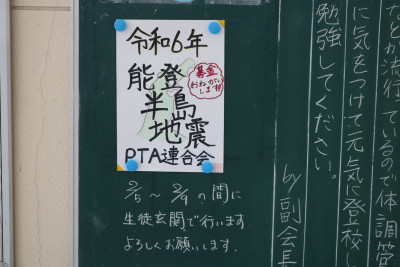 令和6年
能登
半島
地震
募金
おねがい
します!!
PTA連合会
2/5 ～ 2/9 の間に
生徒玄関で行います.
よろしくお願いします.
など が流行っているので体調管
に気をつけて元気に登校し
勉強してください。
by 副会長